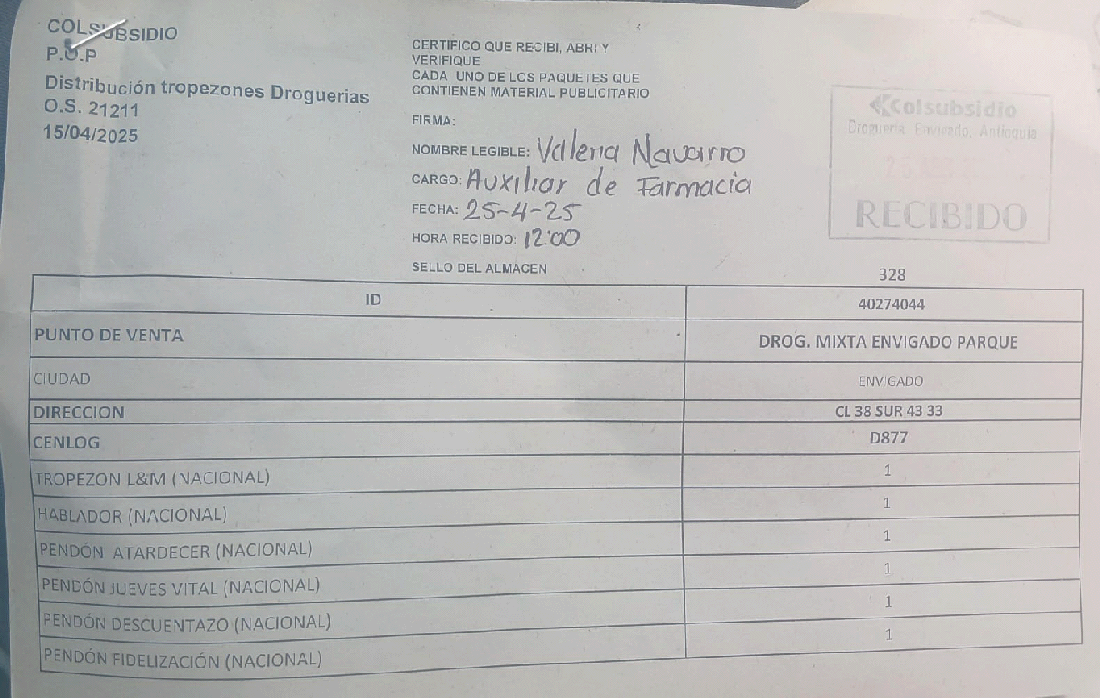 COLSUBSIDIO
P.O.P
Distribución tropezones Droguerias
O.S. 21211
15/04/2025
CERTIFICO QUE RECIBI, ABRI Y
VERIFIQUE
CADA UNO DE LOS PAQUETES QUE
CONTIENEN MATERIAL PUBLICITARIO
FIRMA:
NOMBRE LEGIBLE: Valeria Navarro
CARGO: Auxiliar de Farmacia
FECHA: 25-4-25
HORA RECIBIDO: 12:00
SELLO DEL ALMACEN
Colsubsidio
Droguería Envigado, Antioquia
RECIBIDO
328
ID 40274044
PUNTO DE VENTA DROG. MIXTA ENVIGADO PARQUE
CIUDAD ENVIGADO
DIRECCION CL 38 SUR 43 33
CENLOG D877
TROPEZON L&M (NACIONAL) 1
HABLADOR (NACIONAL) 1
PENDÓN ATARDECER (NACIONAL) 1
PENDÓN JUEVES VITAL (NACIONAL) 1
PENDÓN DESCUENTAZO (NACIONAL) 1
PENDÓN FIDELIZACIÓN (NACIONAL) 1